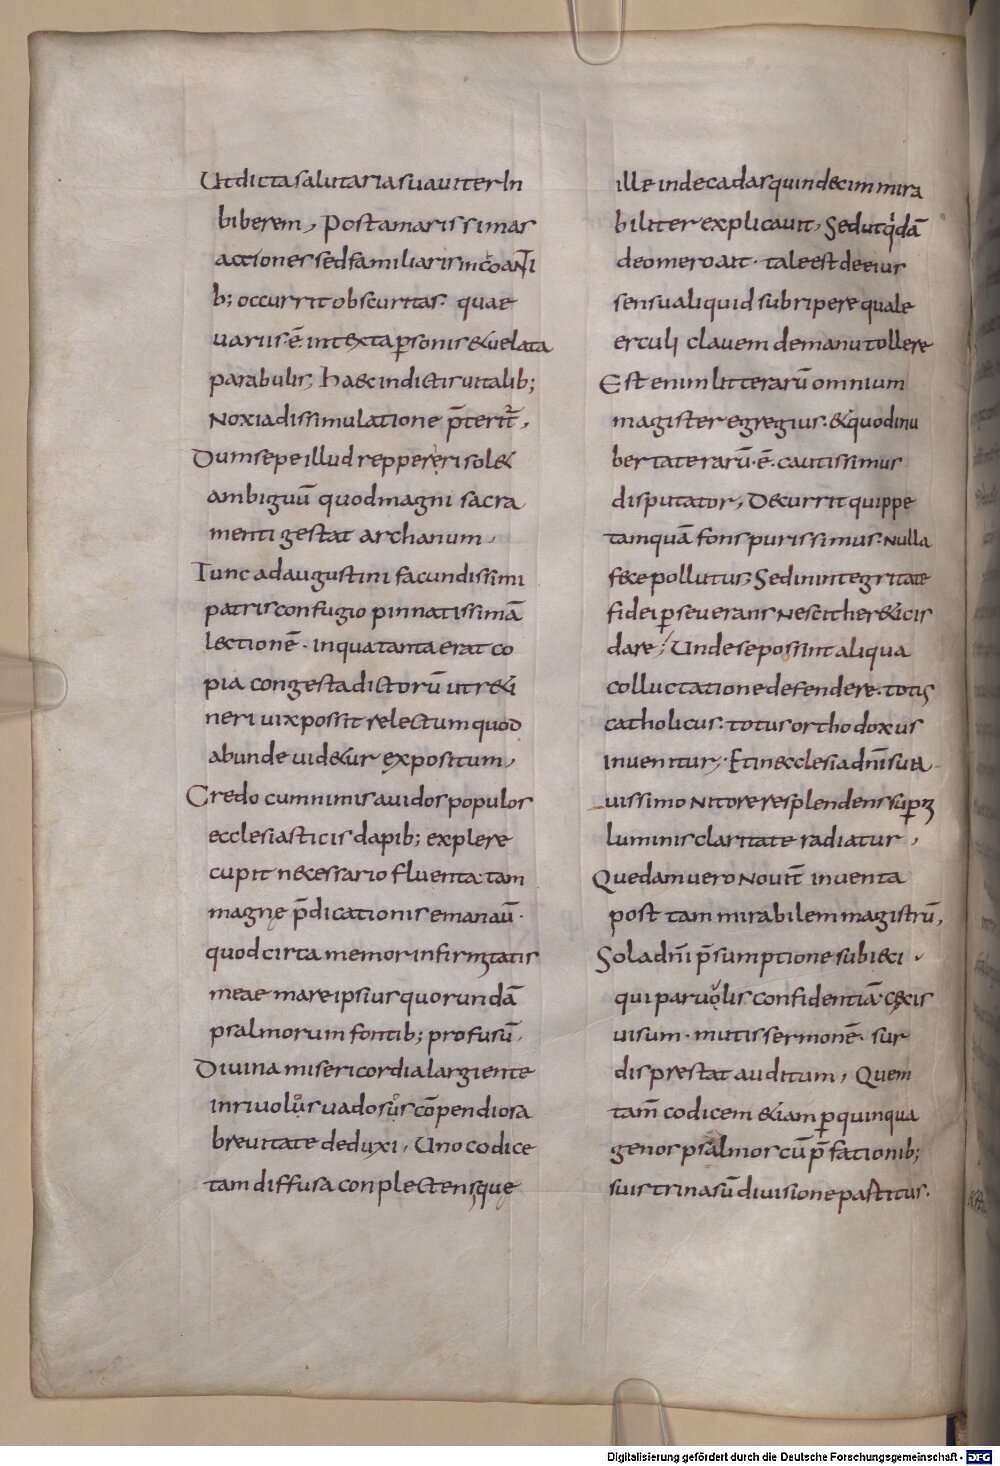 Ut dicta salutaria suauiter in
biberem, Post amarissimas
actiones sed familiaris incoanti
b; occurrit obscuritas· quae
uariis·ē· intexta p̱sonis &uelata
parabulis; haec indictis uitalib;
Noxia dissimulatione p̄terit̄,
Dum sepe illud repperęri sol&
ambiguū quod magni sacra
menti gestat archanum,
Tunc ad augustini facundissimi
patris confugio pinnatissimā
lectionē· in qua tanta erat co
pia congesta dictorū ut r&i
neri uix possit relectum quod
abunde uid&ur expositum,
Credo cum nimis auidos populos
ecclesiasticis dapib; explere
cupit necessario fluenta tam
magnę p̄dicationis emanaū·
quod circa memor infirmitatis
meae mare ipsius quorundā
psalmorum fontib; profusū,
Diuina misericordia largiente
in riuolus uadosus cōpendiosa
breuitate deduxi, Uno codice
tam diffusa conplectens que
ille in decadas quindecim mira
biliter explicauit, Sed ut qidā
de omero ait· tale est de eius
sensu aliquid subripere quale
erculi clauem de manu tollere
Est enim litterarū omnium
magister egregius· &quod in u
bertate rarū·ē· cautissimus
disputator, Decurrit quippe
tamquā fons purissimus· Nulla
fece pollutus; Sed in integritate
fidei p̱seuerans Nescit her&icis
dare, Unde se possint aliqua
colluctatione defendere· totus
catholicus· totus orthodoxus
inuenitur,· Et in ecclesia dn̄i sua
uissimo Nitore resplendens sup̱ni
luminis claritate radiatur,
Quedam uero Nouit̄ inuenta
post tam mirabilem magistrū,
Sola dn̄i p̄sumptione subieci
qui paruolis confidentiā· cęcis
uisum· mutis sermonē· sur
dis prestat auditum, Quem
tam̄ codicem &iam p̱ quinqua
genos psalmos cū p̄fationib;
suis trina sū diuisione partitus·
Digitalisierung gefördert durch die Deutsche Forschungsgemeinschaft - DFG